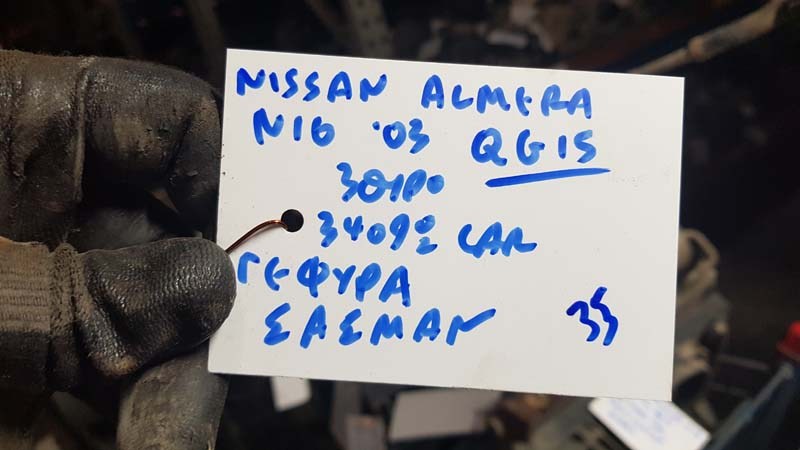 NISSAN ALMERA
N16 '03 QG15
3ΘΥΡΟ
34092 CAR
ΓΕΦΥΡΑ
ΣΑΣΜΑΝ 35